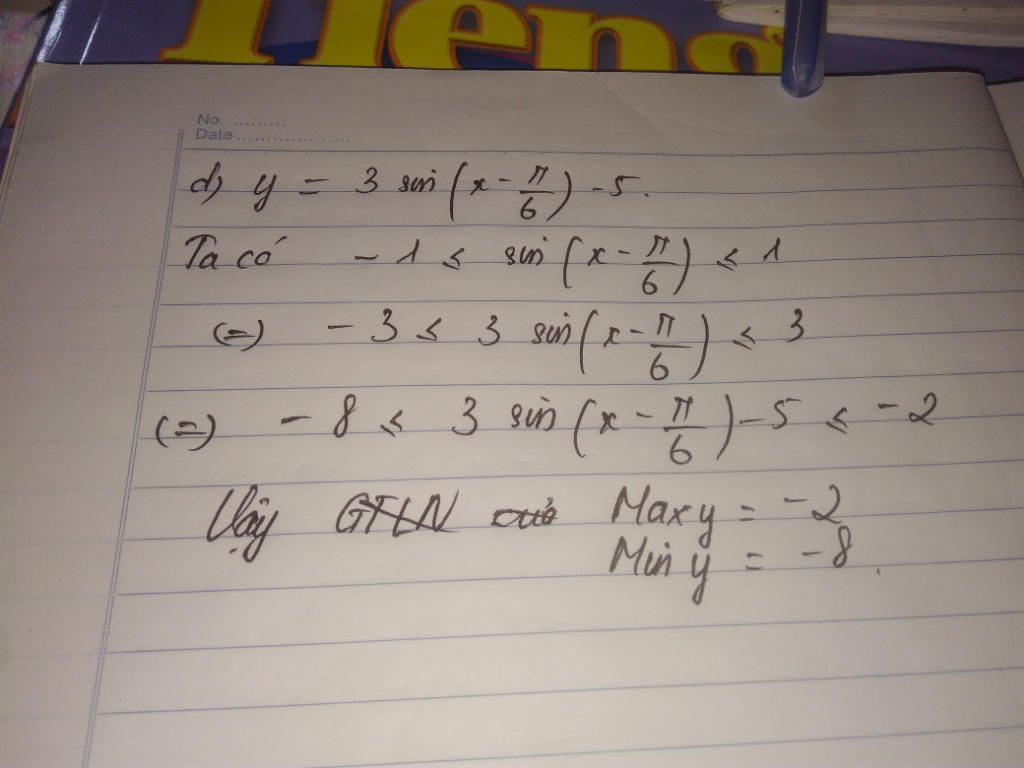 Tieng
No. .........
Date ...................
d) y = 3 sin(x - π/6) - 5.
Ta có - 1 ≤ sin(x - π/6) ≤ 1
(=) - 3 ≤ 3 sin(x - π/6) ≤ 3
(=) - 8 ≤ 3 sin(x - π/6) - 5 ≤ - 2
Vậy GTLN của Max y = - 2
Min y = - 8.